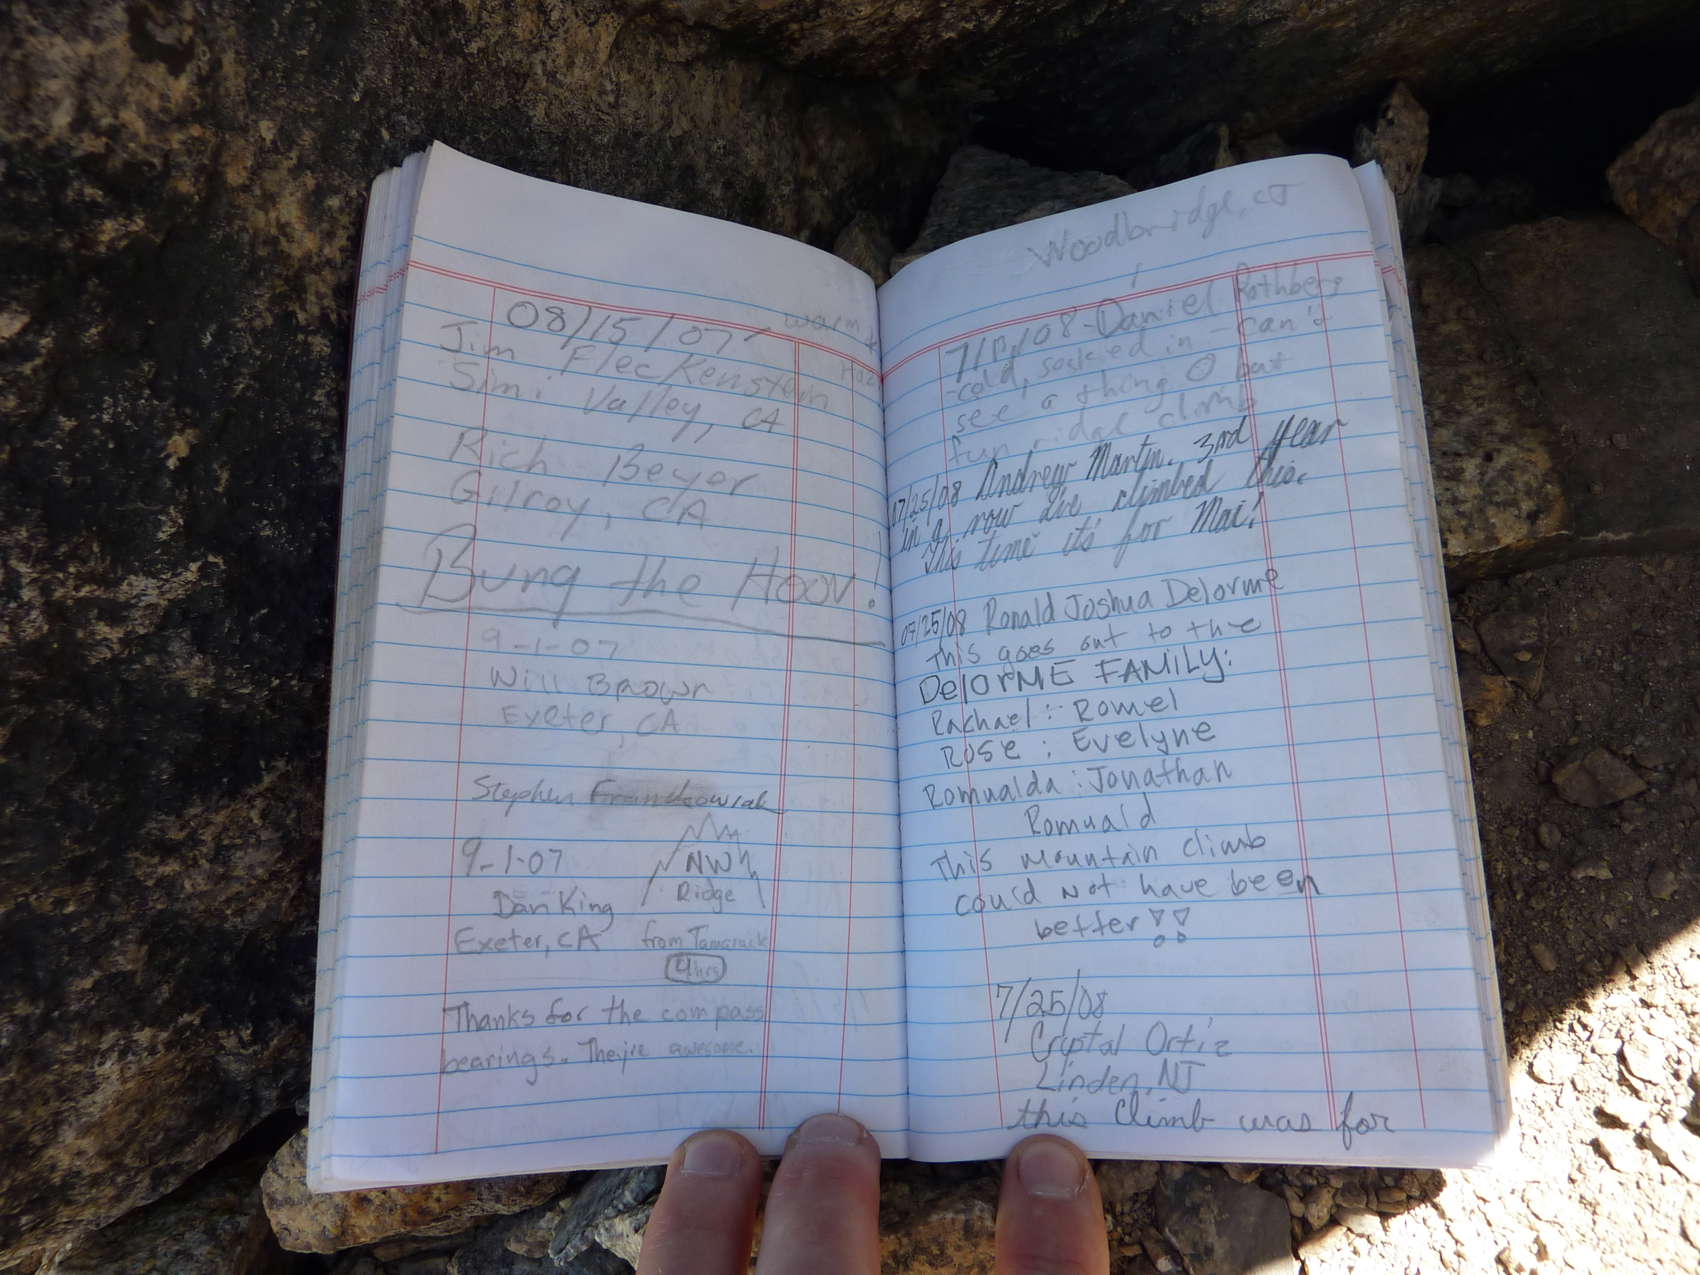 08/15/07- warm
Jim Fleckenstein
Simi Valley, CA
Rich Beyer
Gilroy, CA
Bung the Hoov!
9-1-07
Will Brown
Exeter, CA
Stephen
9-1-07
NW
Ridge
Dan King
Exeter, CA from Tamarack
4hrs
Thanks for the compass
bearings. They're awesome.
Woodbridge, CT
08-Daniel Rothberg
-cold, socked in - can't
see a thing but
fun ridge climb
07/25/08 Andrew Martin. 3rd year
in a row I've climbed this.
this time it's for Mai!
07/25/08 Ronald Joshua Delorme
This goes out to the
DelorME FAMILY:
Rachael : Romel
Rose : Evelyne
Romualda : Jonathan
Romuald
This mountain climb
could not have been
better!!
7/25/08
Crystal Ortiz
Linden, NJ
this climb was for